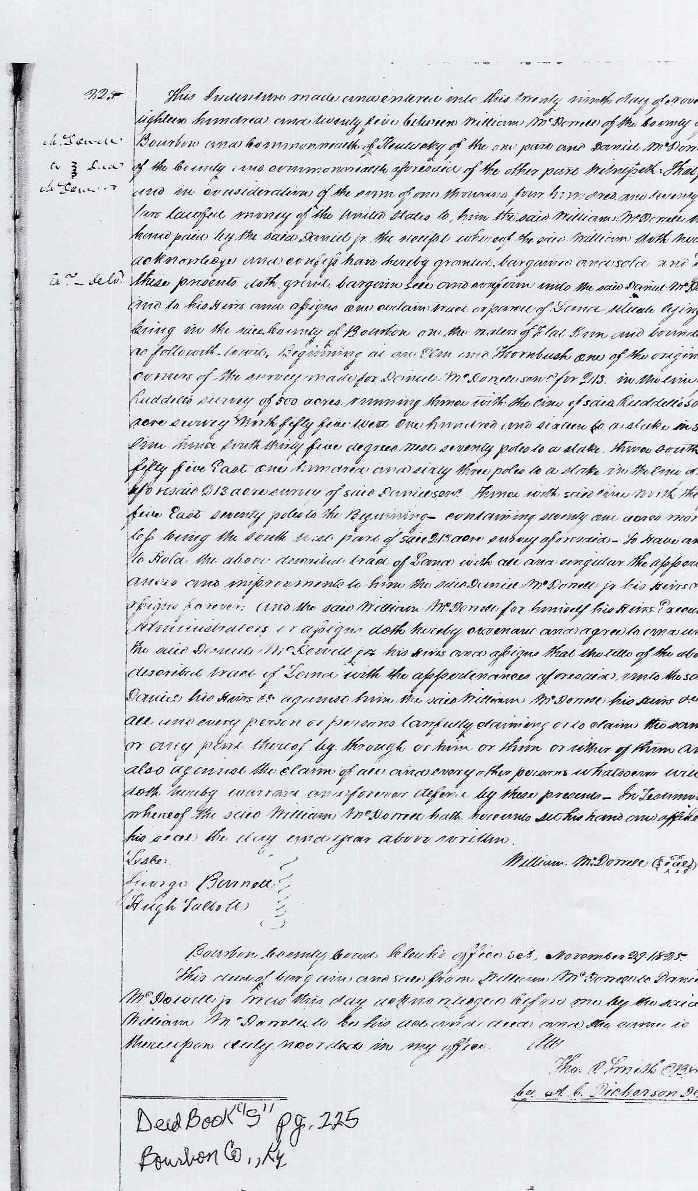 225
This Indenture made and entered into this twenty ninth day of Nove
eighteen hundred and twenty five between William McDowell of the County
Bourbon and Commonwealth of Kentucky of the one part and Daniel McDow
of the County and Commonwealth aforesaid of the other part Witnesseth That
McDowell
to } Deed
McDowell
and in consideration of the sum of one thousand four hundred and seventy
two lawful money of the United States to him the said William McDowell
hand paid by the said Daniel jr. the receipt whereof the said William doth
acknowledge and confess have hereby granted, bargained and sold and
these presents doth grant, bargain sell and confirm unto the said Daniel McD
and to his Heirs and assigns one certain tract or parcel of Land situate lying
being in the said County of Bourbon on the waters of Flat Run and bound
as followeth towit, Beginning at an Elm and Thornbush one of the origin
corners of the survey made for Daniel McDowell senr for 213 in the line
Ruddells survey of 500 acres running thence with the line of said Ruddells
acre survey North fifty five West one hundred and sixteen to a stake in
line thence South thirty five degrees west seventy poles to a stake thence South
fifty five East one hundred and sixty three poles to a stake in the line
aforesaid 213 acre survey of said Daniel senr thence with said line North
five East seventy poles to the Beginning – containing seventy one acres
less being the south west part of said 213 acre survey aforesaid – To Have an
to Hold the above described tract of Land with all and singular the appurt
ances and improvements to him the said Daniel McDowell jr his Heirs
assigns forever and the said William McDowell for himself his Heirs Execu
Administrators or assigns doth hereby covenant and agree to and
the said Daniel McDowell jr his Heirs and assigns that the title of the abo
described tract of Land with the appurtenances aforesaid unto the sa
Daniel his Heirs &c against him the said William McDowell his heirs
all and every person or persons lawfully claiming or to claim the sam
or any part thereof by through or him or them or either of them
also against the claim of all and every other persons whatsoever will
doth hereby warrant and forever defend by these presents – In Testimo
whereof the said William McDowell hath hereunto set his hand and affixed
his seal the day and year above written.
Teste.
William McDowell (Seal)
George Barnett
Hugh Talbott
Bourbon County Court Clerk's office Set. November 29 1825
This deed of bargain and sale from William McDowell to Danie
McDowell jr was this day acknowledged before me by the said
William McDowell to be his act and deed and the same is
thereupon duly recorded in my office. Att
Tho. P. Smith C B
by A. C. Dickerson
Deed Book "S" pg. 225
Bourbon Co., Ky